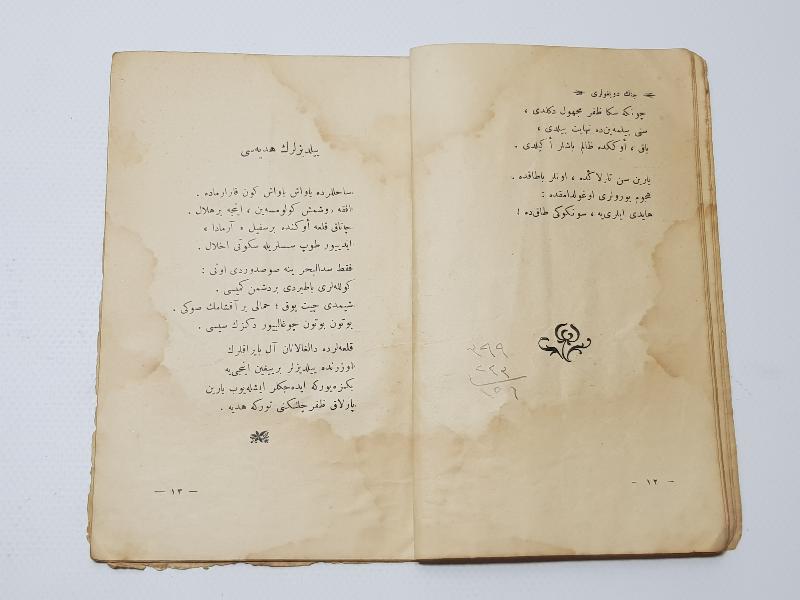 جنك دويغولرى
چونكه سكا ظفر مجهول دكلدى ،
سنى بيلمه‌ين‌ده نهايت بيلدى ،
باق ، أوككده ظالم باشلر أكيلدى .
يارين سن تارلاكده ، اونلر باطاقده
هجوم بورولرى اوغولدامقده :
هايدى ايلرى‌يه ، سونكوكى طاق‌ده !
٣٩٩
٢٤٣
١٥٦
— ١٢ —
ييلديزلرك هديه‌سى
ساحللرده ياواش ياواش كون قارارماده .
افقه دوشمش كولومسه‌ين ، اينجه برهلال .
چاناق قلعه أوكنده برسفيل « آرمادا »
ايدييور طوپ سسلريله سكوتى اخلال .
فقط سدالبحر ينه صوصدوردى اونى :
كولله‌لرى باطيردى بردشمن كميسى .
شيمدى چيت يوق ؛ حمالى بر آقشامك صوكى .
بوتون بوتون چوغالييور دكزك سيسى .
قلعه‌لرده دالغالانان آل بايراقلرك
اوزرنده ييلديزلر بر ييغين اينجى‌يه
بكزه‌يوركه ايده‌جكلر ايشله‌يوب يارين
پارلاق ظفر چلنكنى توركه هديه .
— ١٣ —